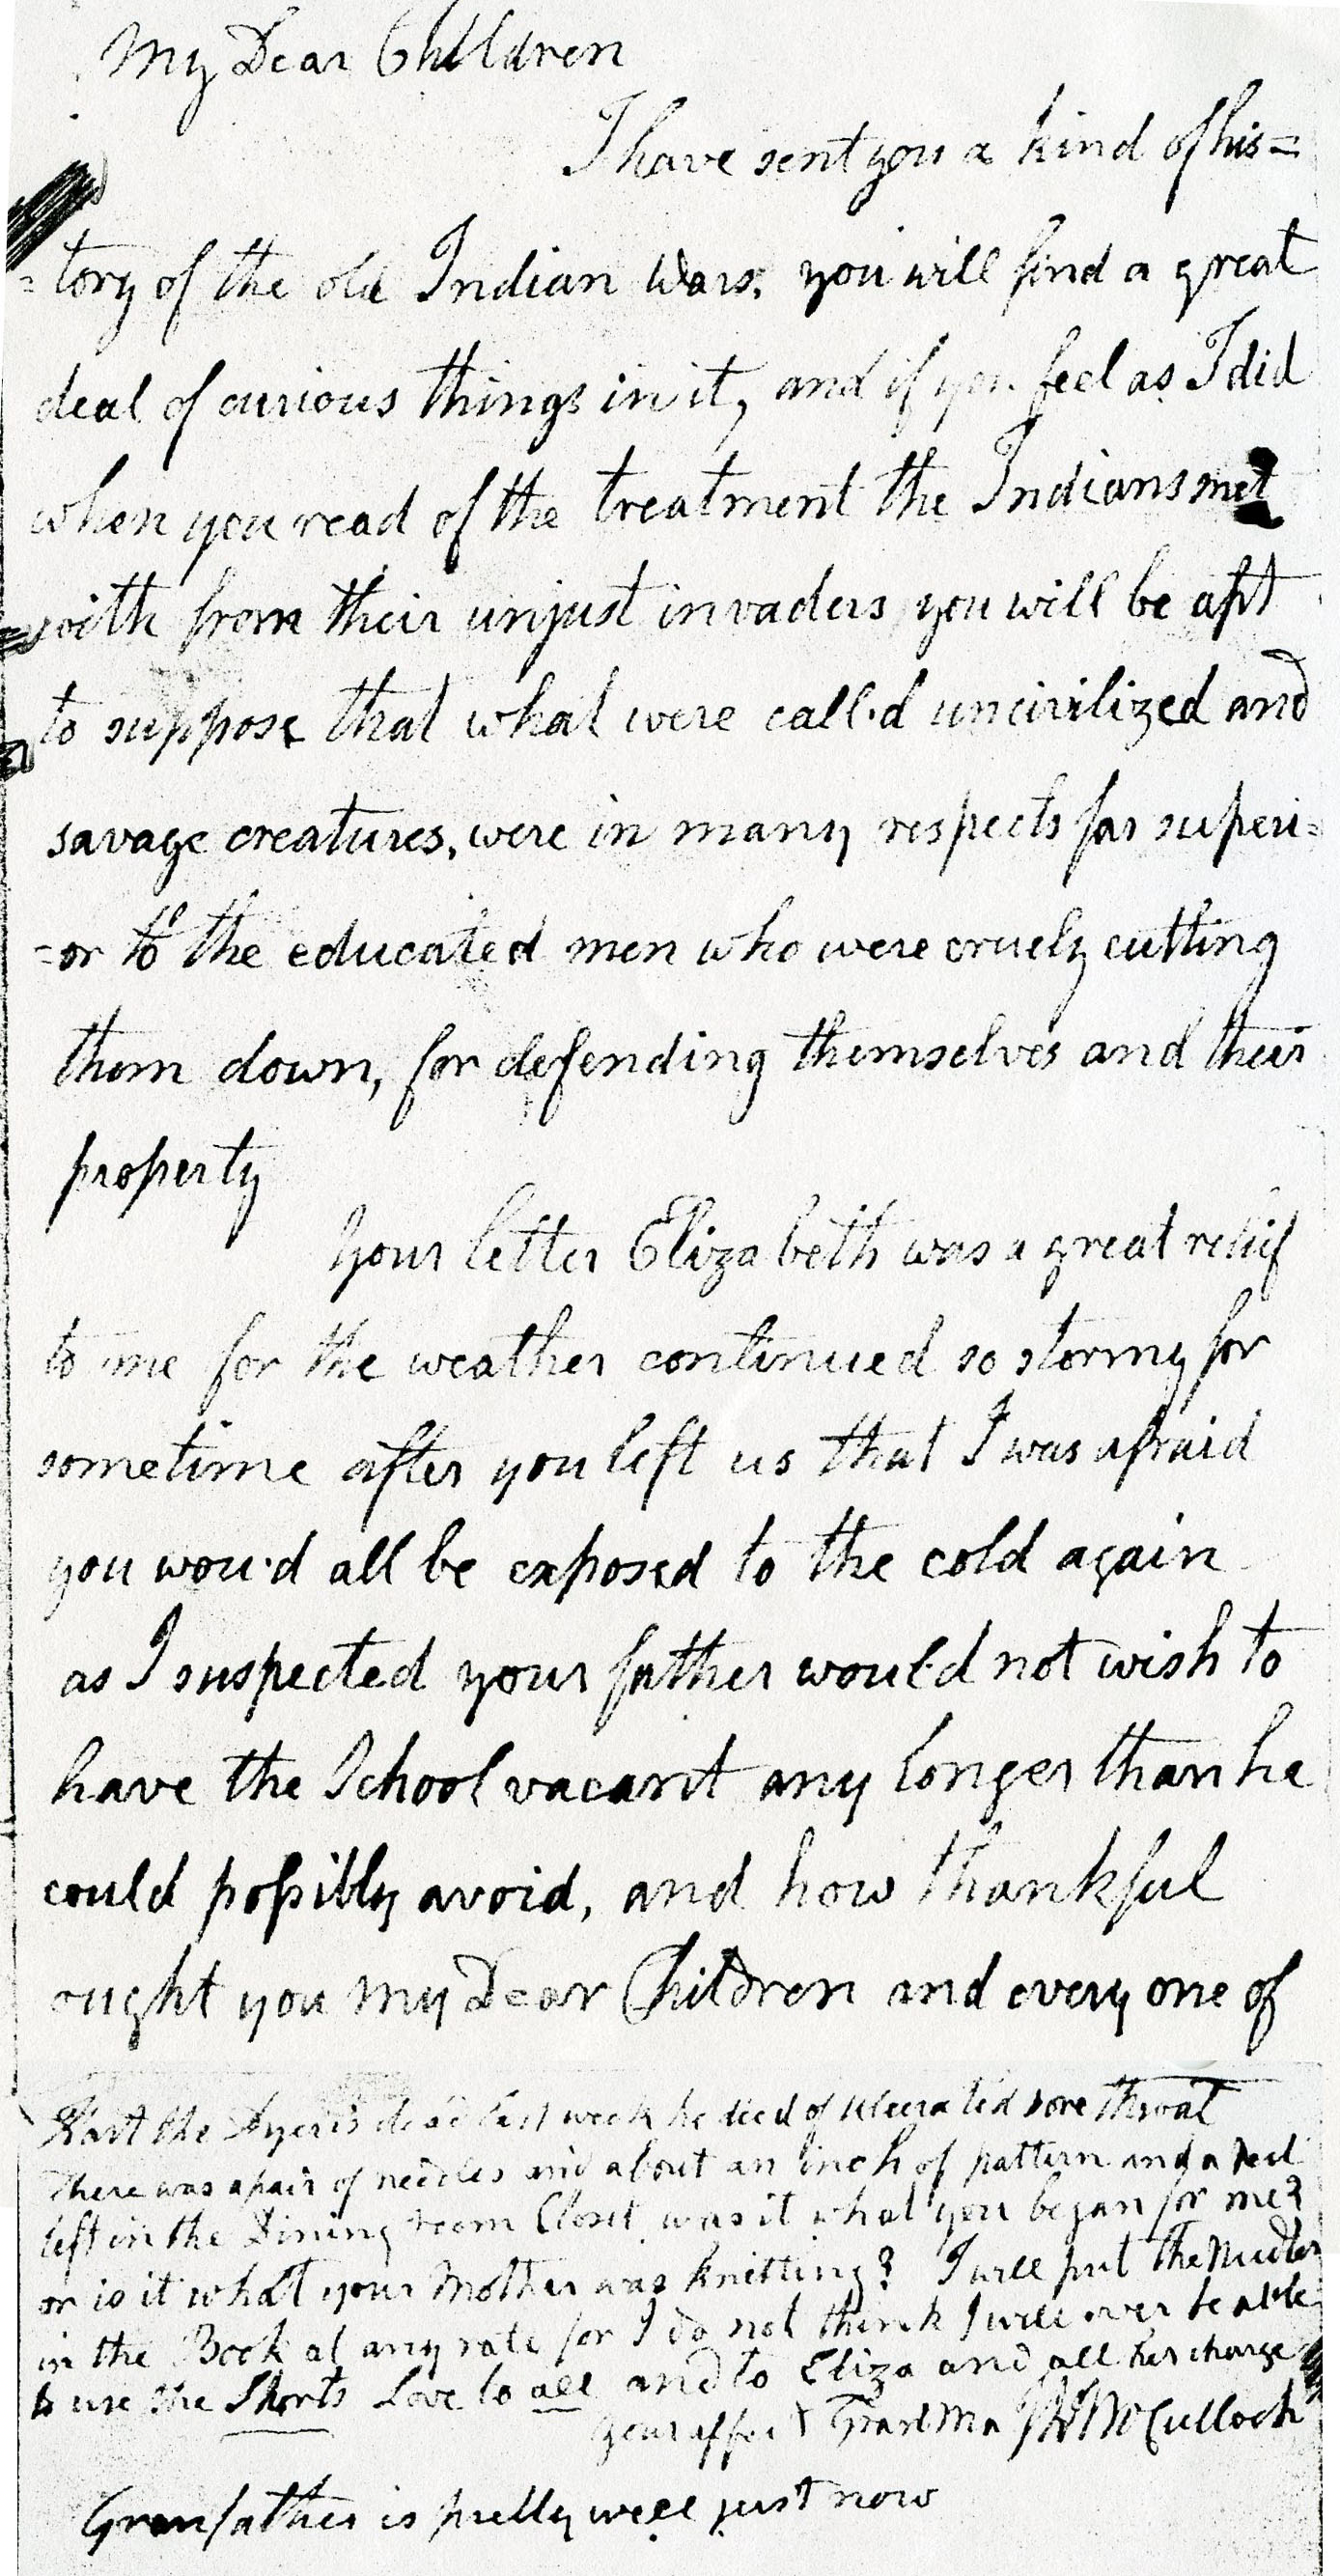 My Dear Children
I have sent you a kind of his=
=tory of the old Indian Wars, you will find a great
deal of curious things in it, and if you feel as I did
when you read of the treatment the Indians met
with from their unjust invaders you will be apt
to suppose that what were call.d uncivilized and
savage creatures, were in many respects far superi=
=or to the educated men who were cruely cutting
them down, for defending themselves and their
property
Your letter Elizabeth was a great relief
to me for the weather continued so stormy for
sometime after you left us that I was afraid
you wou.d all be exposed to the cold again
as I suspected your father would not wish to
have the School vacant any longer than he
could possibly avoid, and how thankful
ought you my Dear Children and every one of
the Dyer is dead last week he died of ulcerated sore throat
There was a pair of needles and about an inch of pattern and a
left in the Dining room Closet was it what you began for me?
or is it what your Mother was knitting? I will put the
in the Book at any rate for I do not think I will ever be able
to use the Shorts Love to all and to Eliza and all her charge
your affect GrandMa McCulloch
Granfather is pretty well just now